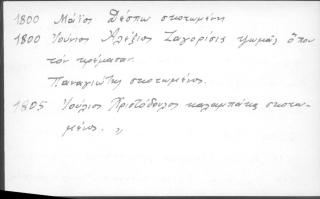 1800 Μάϊος Δέσπω σκοτωμένη
1800 Ἰούνιος Ἀλέξιος Ζαγορίσιος ὅπου
τόν κρέμασαν.
Παναγιώτης σκοτωμένος.
1805 Ἰούλιος Χριστόδουλος καλαμπάκα σκοτω-
μένος.